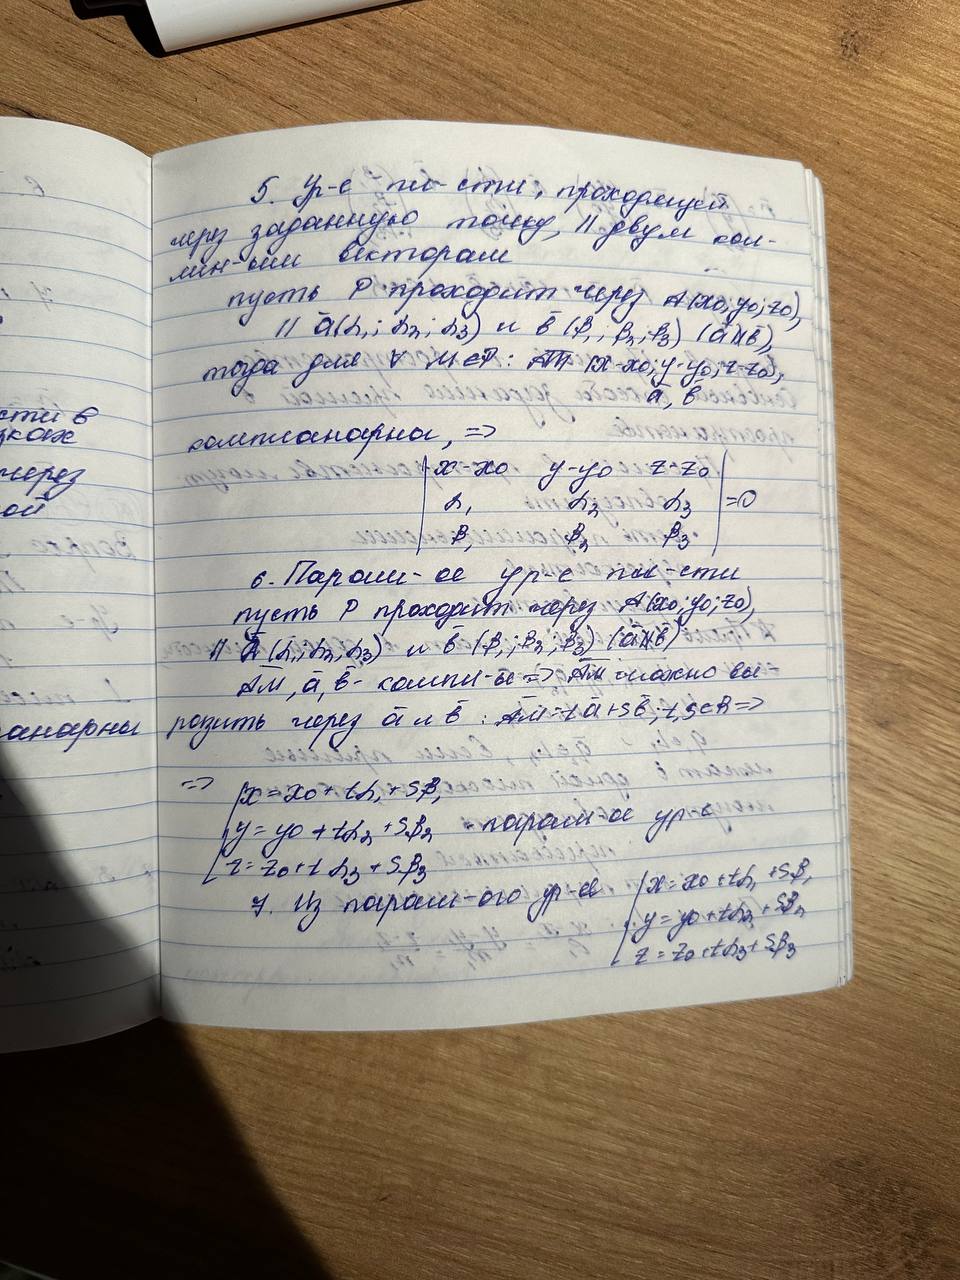 сти в
через
ой
анарны
5. Ур-е пл-сти, проходящей
через заданную точку, || двум кол-
лин-ым векторам
пусть P проходит через A(x0; y0; z0),
|| ā(α1; α2; α3) и b̄(β1; β2; β3) (ā∦b̄),
тогда для ∀ M∈P: AM (x-x0; y-y0; z-z0),
ā, b̄
компланарны, =>
| x-x0 y-y0 z-z0 |
| α1 α2 α3 | =0
| β1 β2 β3 |
6. Парам-ое ур-е пл-сти
пусть P проходит через A(x0; y0; z0),
|| ā(α1; α2; α3) и b̄(β1; β2; β3) (ā∦b̄)
AM, ā, b̄ - компл-ы => AM можно вы-
разить через ā и b̄: AM=tā+sb̄; t,s∈R =>
=> { x=x0+tα1+sβ1
y=y0+tα2+sβ2 - парам-ое ур-е
z=z0+tα3+sβ3
7. Из парам-ого ур-я { x=x0+tα1+sβ1
y=y0+tα2+sβ2
z=z0+tα3+sβ3